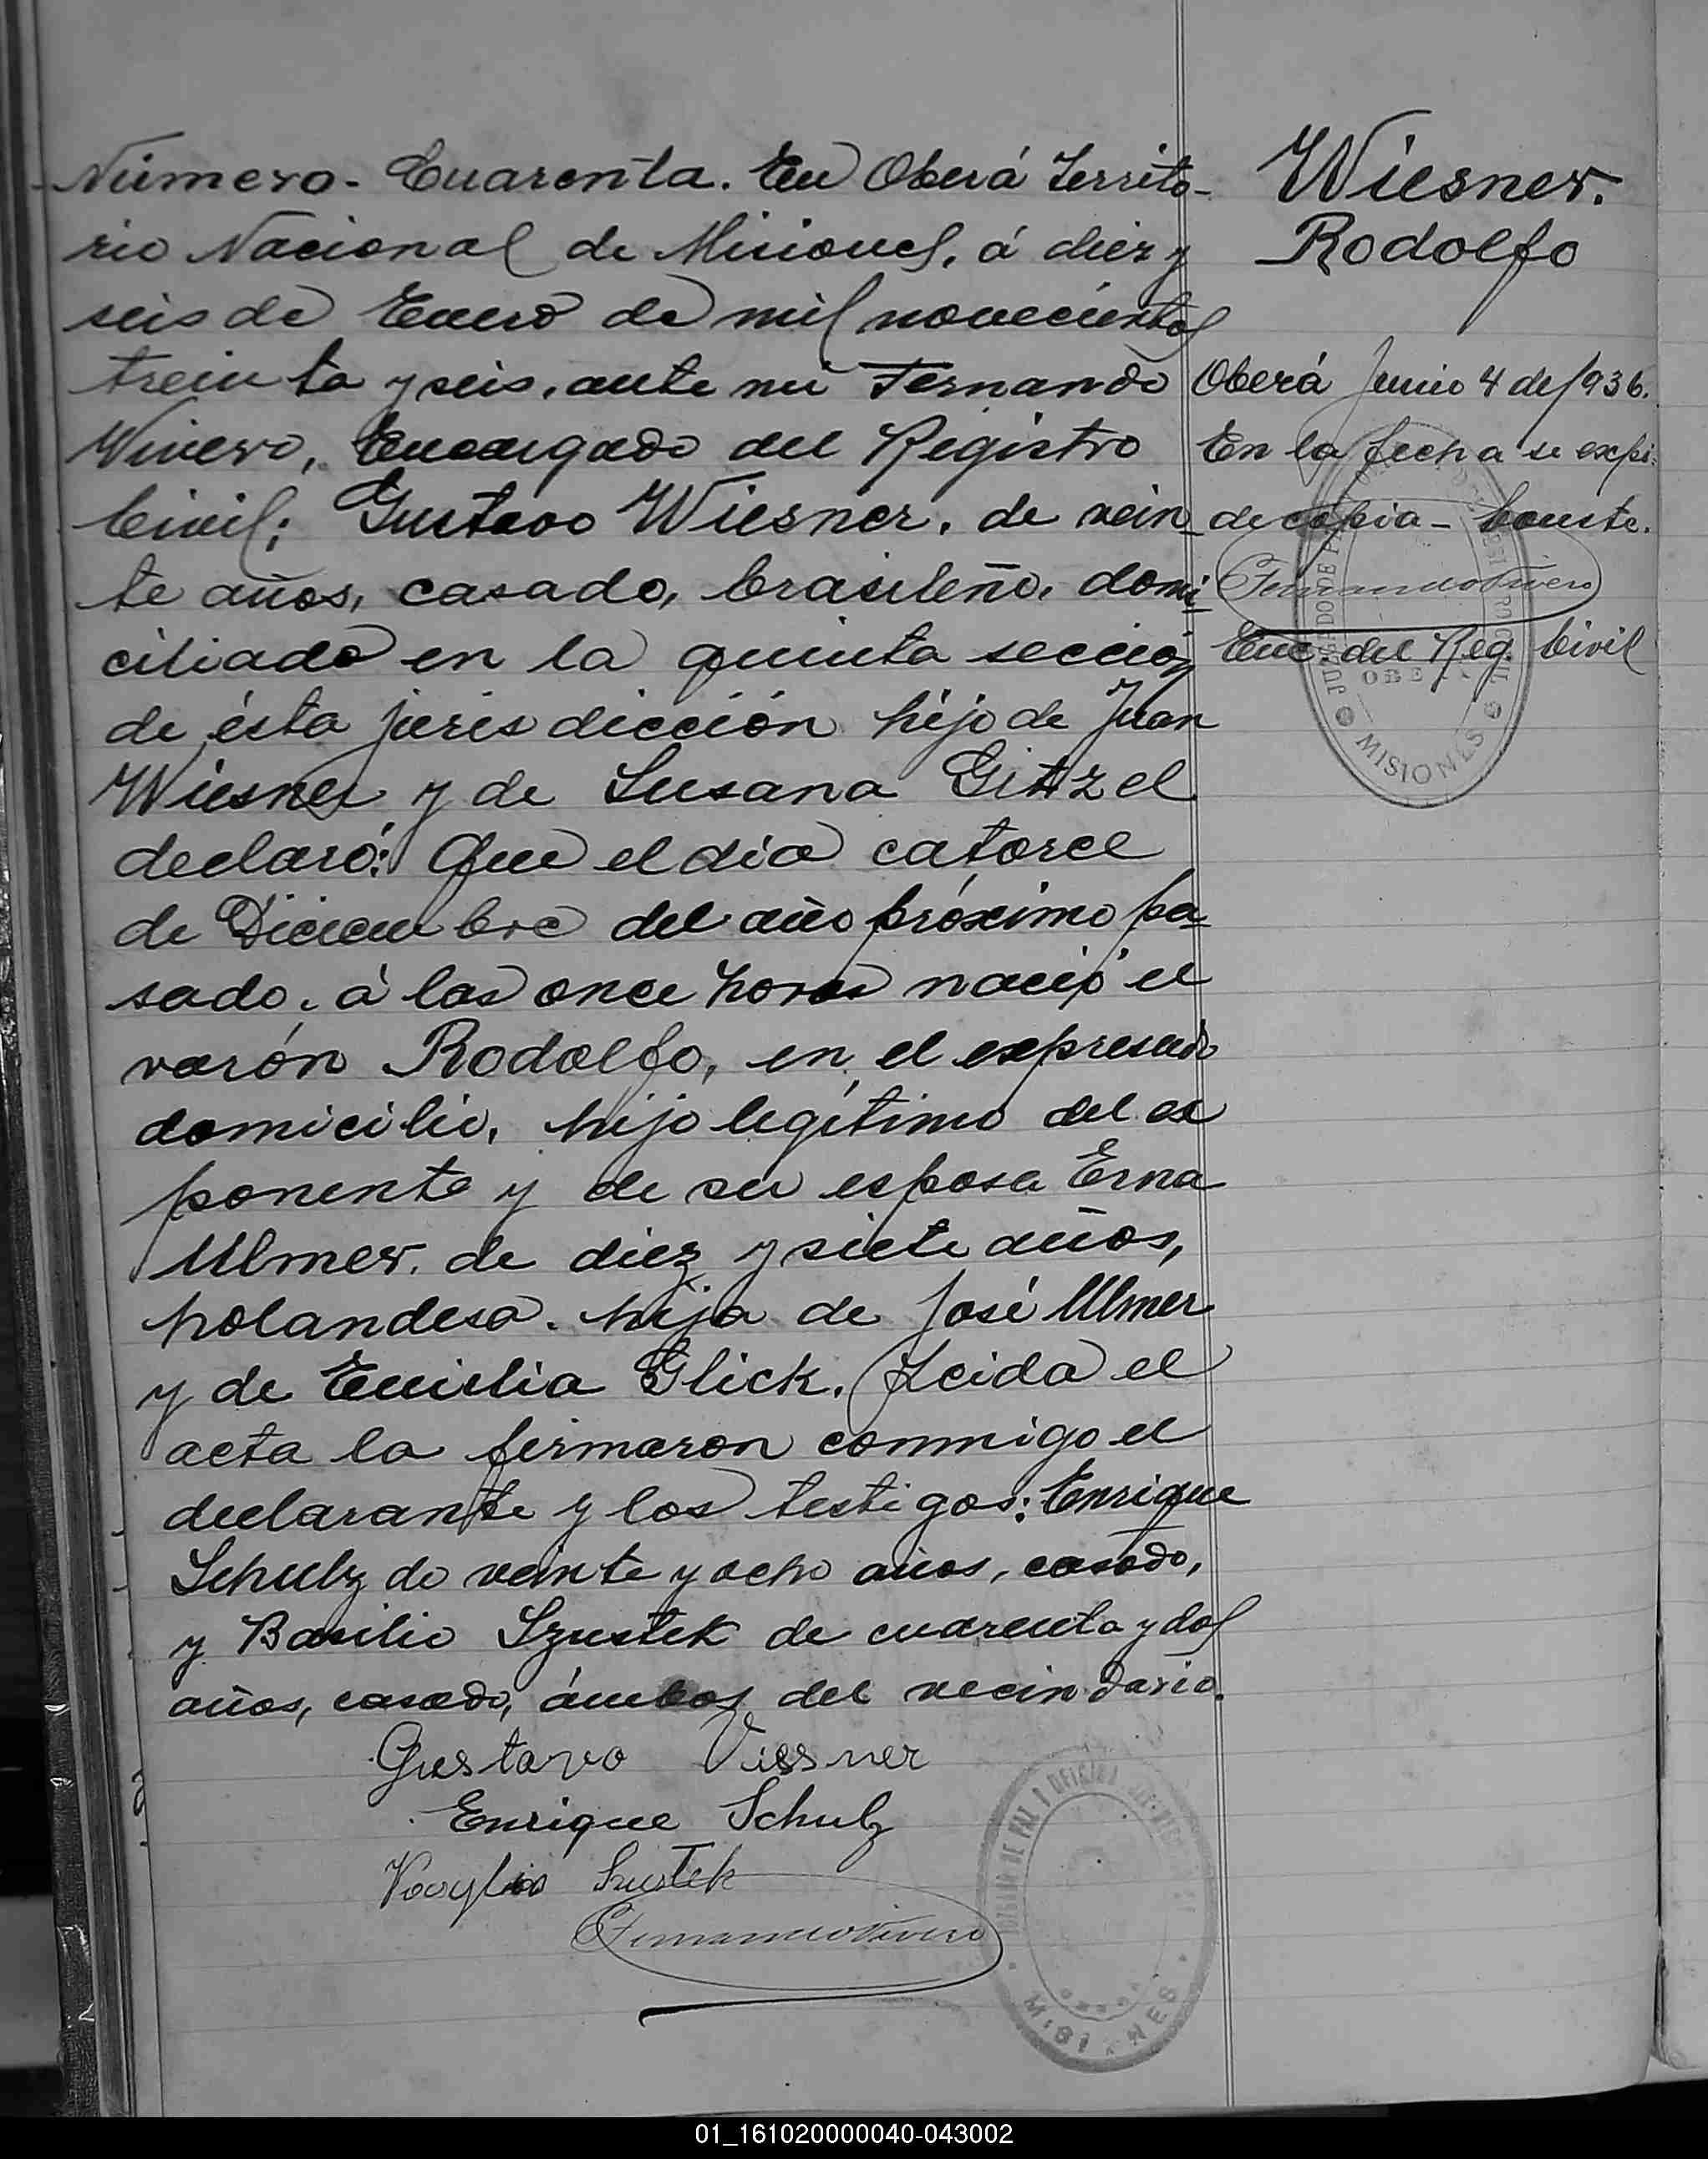 Número - Cuarenta. En Oberá Territo-
rio Nacional de Misiones, á diez y
seis de Enero de mil novecientos
treinta y seis, ante mi Fernando
Vivero, Encargado del Registro
Civil; Gustavo Wiesner, de vein-
te años, casado, brasileño, domi-
ciliado en la quinta sección
de ésta jurisdicción hijo de Juan
Wiesner y de Susana Gitzel
declaró: Que el dia catorce
de Diciembre del año próximo pa-
sado, á las once horas nació el
varón Rodolfo, en el expresado
domicilio, hijo legítimo del ex
ponente y de su esposa Erna
Ulmer, de diez y siete años,
holandesa, hija de José Ulmer
y de Emilia Glick. Leida el
acta la firmaron conmigo el
declarante y los testigos: Enrique
Schulz de veinte y ocho años, casado,
y Basilio Szustek de cuarenta y dos
años, casado, ámbos del vecindario.
Gustavo Viesner
Enrique Schulz
Szustek
Fernando Vivero
Wiesner.
Rodolfo
Oberá Junio 4 de 1936.
En la fecha se expi-
de copia - Conste.
Fernando Vivero
Enc. del Reg. Civil
JUZGADO DE PAZ
OBERA
MISIONES
JUZGADO DE PAZ
MISIONES
01_161020000040-043002